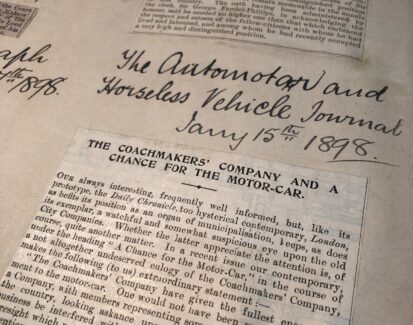 the Coac
cletry. The oath having been administered by
honour, said he desired no higher one than
the respect and esteem of fellow
lived and laboured, and among whom he had recently occupied
a very high and distinguished position.
aph
1898.
The Automotor and
Horseless Vehicle Journal
Jany 15th 1898.
THE COACHMAKERS' COMPANY AND A
CHANCE FOR THE MOTOR-CAR.
OUR always interesting, frequently well informed, but, like its
prototype, the Daily Chronicle, too hysterical contemporary, London,
as befits its position as an organ of municipalisation, keeps, as does
its exemplar, a watchful and somewhat suspicious eye upon the old
City Companies. Whether the latter appreciate the attention is, of
course, quite another matter. In a recent issue our contemporary,
under the heading "A Chance for the Motor-Car," in the course of
a not altogether undeserved eulogy of the Coachmakers' Company,
makes the following (to us) extraordinary statement:—
"The Coachmakers' Company have given the fullest
ment to the motor-car. One would not have been
Company, with members representing som
the country, looking askance up
business be interfered with
resight which